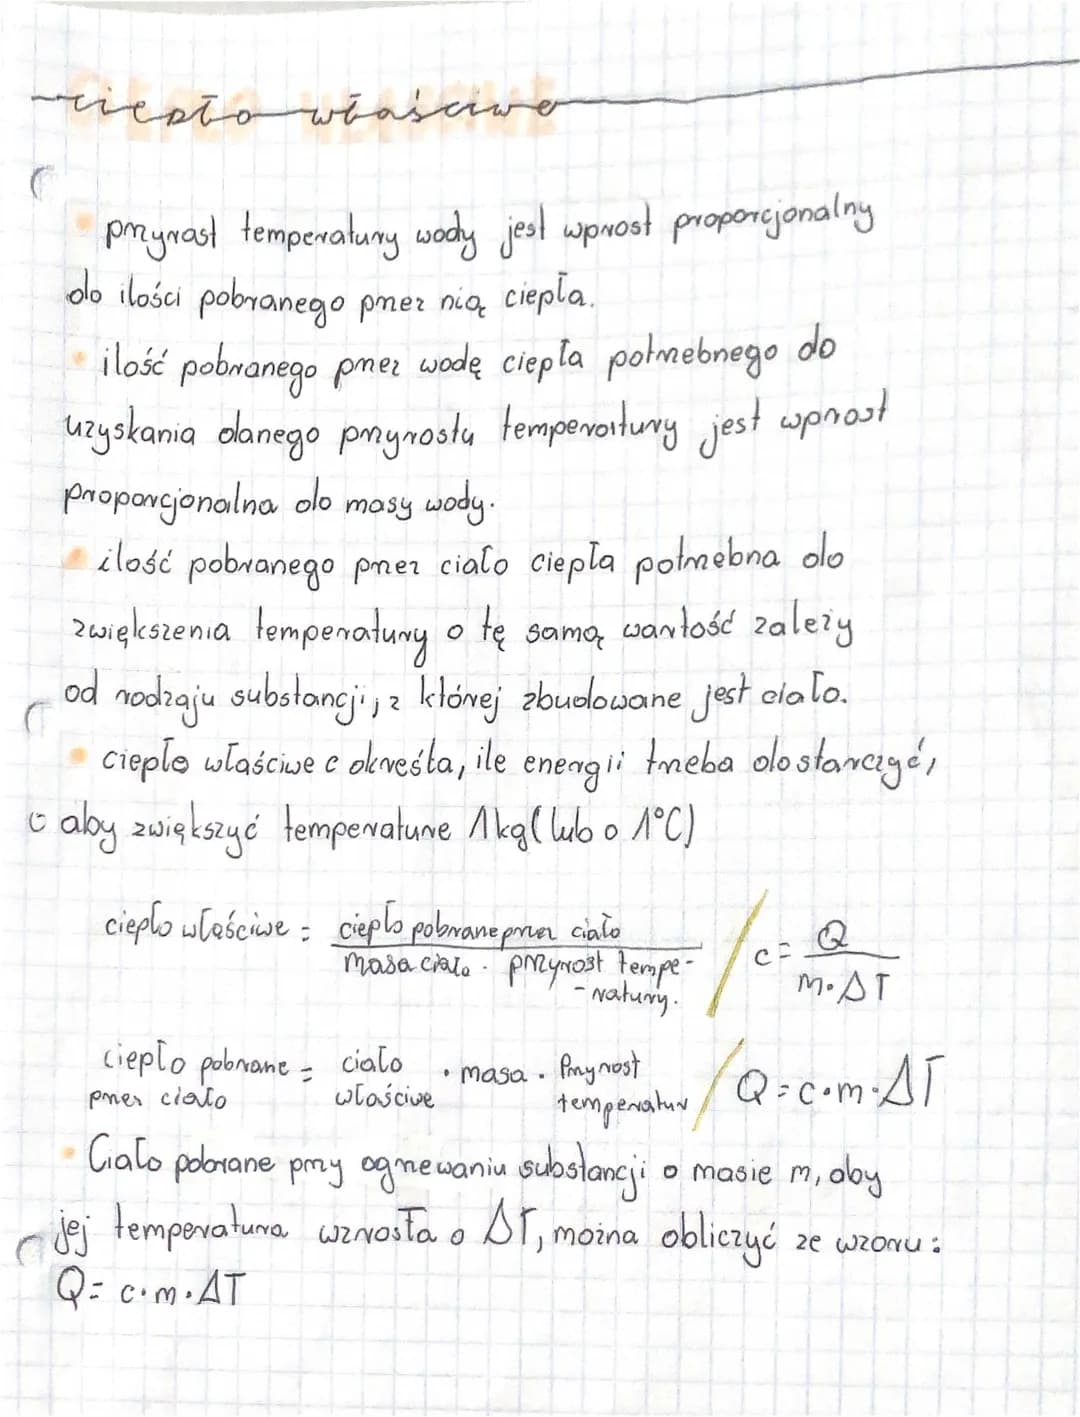 ciepło właściwe
• przyrost temperatury wody jest wprost proporcjonalny
do ilości pobranego przez nią ciepła.
• ilość pobranego przez wodę ciepła potrzebnego do
uzyskania danego przyrostu temperatury jest wprost
proporcjonalna do masy wody.
• ilość pobranego przez ciało ciepła potrzebna do
zwiększenia temperatury o tę samą wartość zależy
od rodzaju substancji, z której zbudowane jest ciało.
• ciepło właściwe c określa, ile energii trzeba dostarczyć,
aby zwiększyć temperature 1kg (lub o 1°C)
ciepło właściwe = ciepło pobrane przez ciało / masa ciała · przyrost tempe-
-ratury. / c = Q / m·ΔT
ciepło pobrane = ciało · masa · Przyrost / Q = c·m·ΔT
przez ciało właściwe temperatur
• Ciało pobrane przy ogrzewaniu substancji o masie m, aby
jej temperatura wzrosła o ΔT, można obliczyć ze wzoru:
Q = c·m·ΔT